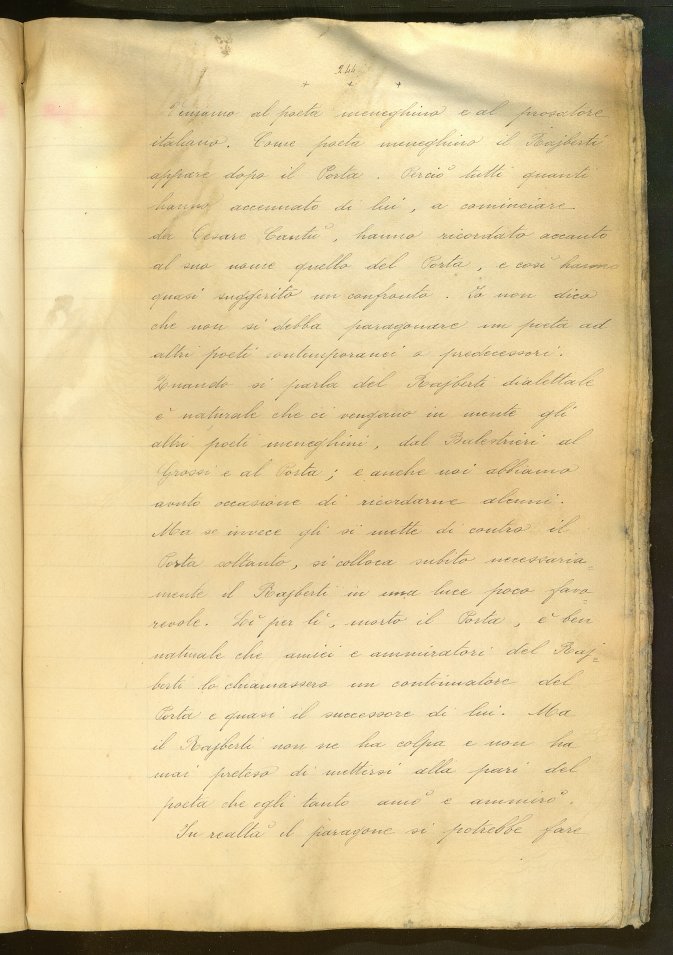 244
+ + +
Veniamo al poeta meneghino e al prosatore
italiano. Come poeta meneghino il Rajberti
appare dopo il Porta. Perciò tutti quanti
hanno accennato di lui, a cominciare
da Cesare Cantù, hanno ricordato accanto
al suo nome quello del Porta, e così hanno
quasi suggerito un confronto. Io non dico
che non si debba paragonare un poeta ad
altri poeti contemporanei o predecessori.
Quando si parla del Rajberti dialettale
è naturale che ci vengano in mente gli
altri poeti meneghini, dal Balestrieri al
Grossi e al Porta; e anche noi abbiamo
avuto occasione di ricordarne alcuni.
Ma se invece gli si mette di contro il
Porta soltanto, si colloca subito necessaria-
mente il Rajberti in una luce poco favo-
revole. Lì per lì, morto il Porta, è ben
naturale che amici e ammiratori del Raj-
berti lo chiamassero un continuatore del
Porta e quasi il successore di lui. Ma
il Rajberti non ne ha colpa e non ha
mai preteso di mettersi alla pari del
poeta che egli tanto amò e ammirò.
In realtà il paragone si potrebbe fare